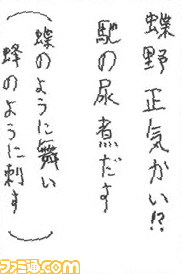 蝶野正気かい!?
馳の尿煮だす
(蝶のように舞い
蜂のように刺す)
ファミ通.com